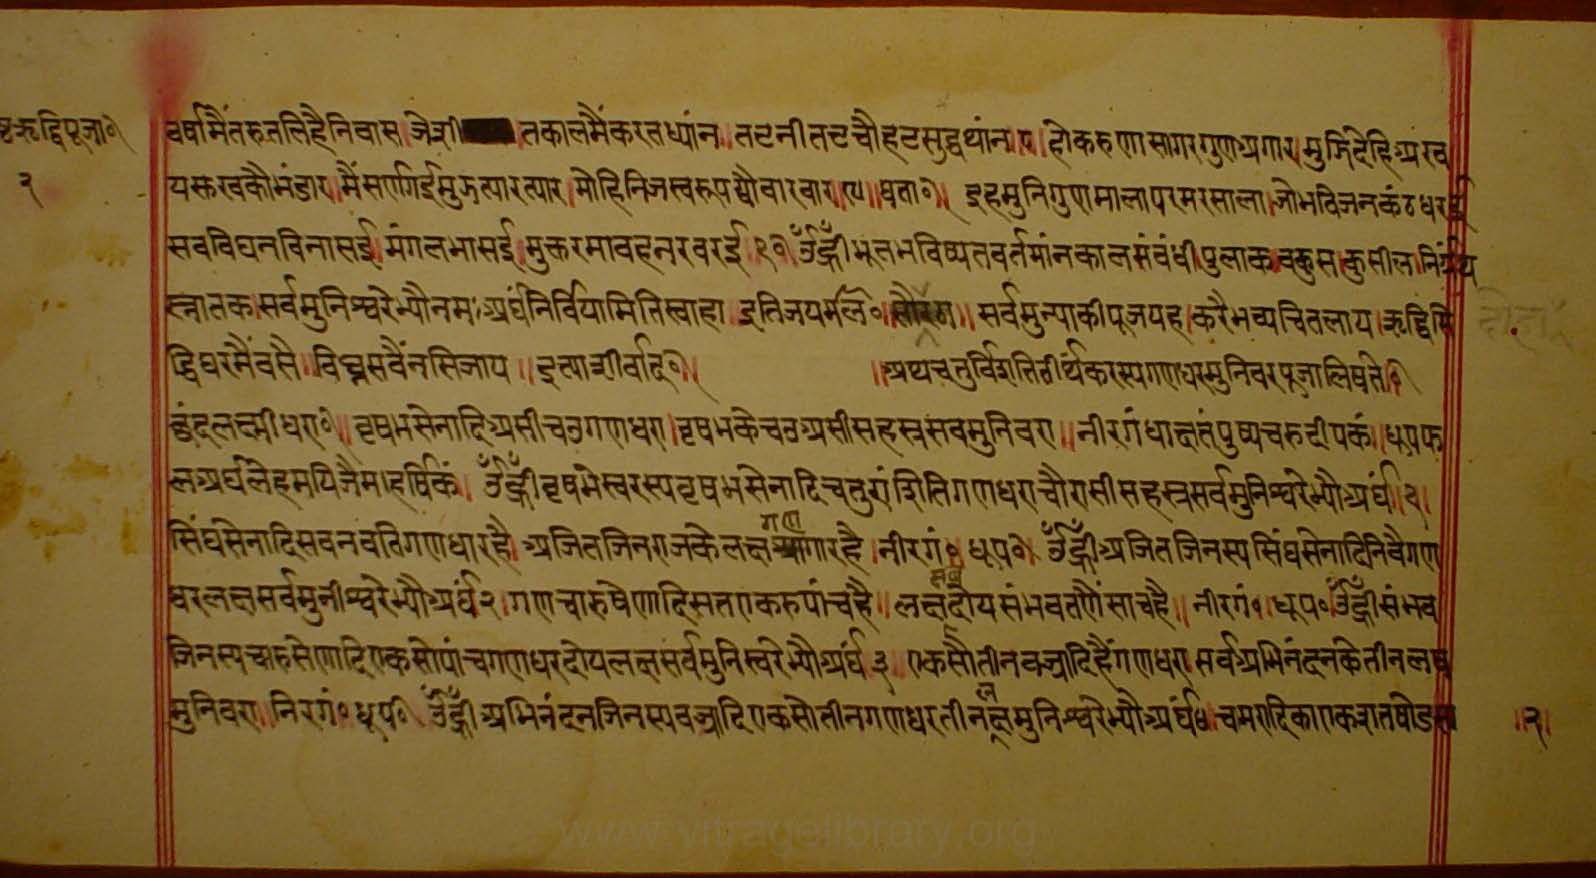 ऋद्धिपूजा॰
२
वर्षामैंतरुतलिहैनिवास।जेशी तकालमैंकरतध्यांन।तटनीतटचौहटसुद्धथांन।५।होकरुणासागरगुणअगार।मुझिदेहिअखव
यसुखकौभंडार।मैंसर्णगईमुझत्यारत्यार।मोहिनिजस्वरूपद्यौवारवार।१५।घता॰। इहमुनिगुणमालापरमरसाला।जोभविजनकंठधरई
सवविघनविनासई।मंगलभासई।मुक्तरमावहनरवरई।१६।ॐह्रीं भूतभविष्यतवर्तमांनकालसंवंधी।पुलाक।वकुस।कुसील।निर्ग्रंथ
स्नातक।सर्वमुनिश्वरेभ्यौनमः अर्घंनिर्विपामितिस्वाहा। इतिजयमल॰। सर्वमुन्याकीपूजयह।करैभव्यचितलाय।ऋद्धिसि
द्धिघरमैंवसै।विघ्नसवैंनसिजाय॥इत्याशीर्वाद॰। ॥अथचतुर्विंशतितीर्थंकरस्यगणधरमुनिवरपूजालिष्यते॰
छंदलक्ष्मीधरा॰॥वृषभसेनादिअसीचउगणधरा।वृषभकेचउअसीसहस्रसवमुनिवरा॥नीरगंधाक्षतंपुष्पचरुदीपकं।धूपफ
लअर्घलेहमयजैमाहर्षिकं। ॐह्रींवृषभेस्वरस्यवृषभसेनादिचतुराशितिगणधराचौरासीसहस्रसर्वमुनिश्वरेभ्यौअर्घं।१।
सिंघसेनादिसवनवतिगणधारहै।अजितजिनराजकेलक्षगणागारहै।नीरगं॰धूप॰। ॐह्रींअजितजिनस्यसिंघसेनादिनिवैगण
धरलक्षसर्वमुनीश्वरेभ्यौअर्घं२।गणचारुषेणादिसतएकरुपांचहै॥लक्षदोयसर्वसंभवतणैंसाचहै॥नीरगं॰।धूप॰ॐह्रींसंभव
जिनस्यचारुसेणादिएकसोपांचगणधरदोयलक्षसर्वमुनिस्वरेभ्यौअर्घं३। एकसौतीनवज्रादिहैंगणधरा।सर्वअभिनंदनकेतीनलष
मुनिवरा।निरगं॰धूप॰। ॐह्रींअभिनंदनजिनस्यवज्रादिएकसोतीनगणधरतीनलक्षमुनिश्वरेभ्यौअर्घं४।चमरादिकाएकशतषोडसा
॥२।
www.vitragelibrary.org